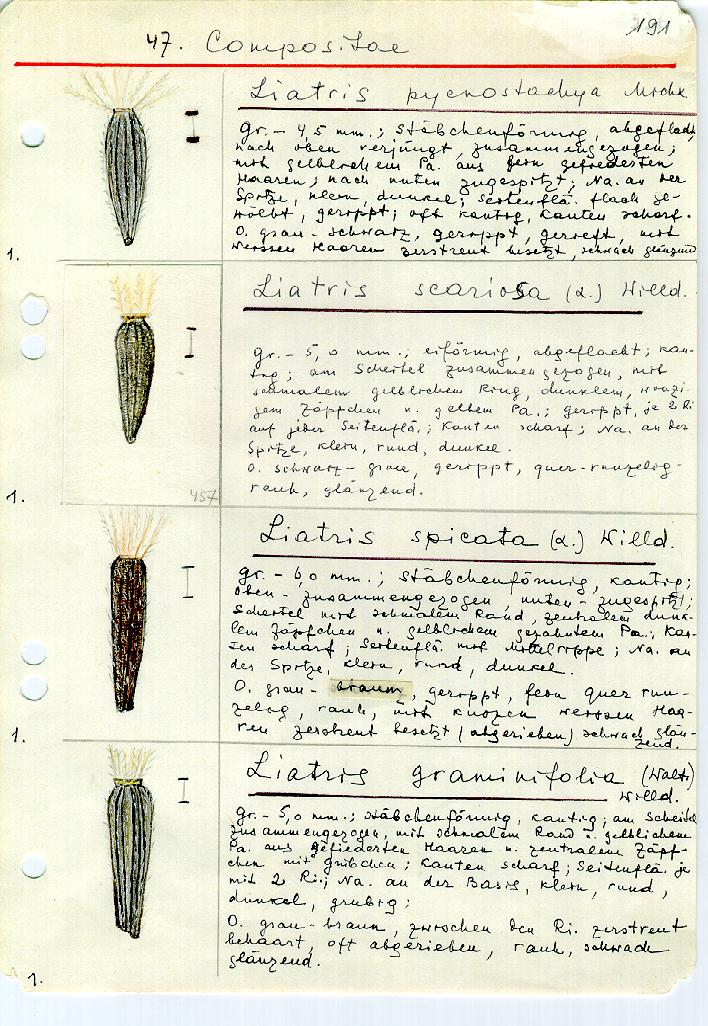 191
47. Compositae
Liatris pycnostachya Michx
gr. - 4,5 mm.; stäbchenförmig, abgeflacht,
nach oben verjüngt, zusammengezogen;
mit gelblichem Pa. aus fein gefiederten
Haaren; nach unten zugespitzt; Na. an der
Spitze, klein, dunkel; Seitenflä. flach ge-
wölbt, gerippt; oft kantig, Kanten scharf.
O. grau - schwarz, gerippt, gerieft, mit
weissen Haaren zerstreut besetzt, schwach glänzend
1.
Liatris scariosa (L.) Willd.
gr. - 5,0 mm.; eiförmig, abgeflacht; kan-
tig; am Scheitel zusammengezogen, mit
schmalem gelblichem Ring, dunklem, winzi-
gem Zäpfchen u. gelbem Pa.; gerippt, je 2 Ri
auf jeder Seitenflä.; Kanten scharf; Na. an der
Spitze, klein, rund, dunkel.
O. schwarz - grau, gerippt, quer-runzelig-
rauh, glänzend.
457
1.
Liatris spicata (L.) Willd.
gr. - 6,0 mm.; stäbchenförmig, kantig;
oben - zusammengezogen, unten - zugespitzt;
Scheitel mit schmalem Rand, zentralem dunk-
lem Zäpfchen u. gelblichem gezähntem Pa.; Kan-
ten scharf; Seitenflä. mit Mittelrippe; Na. an
der Spitze, klein, rund, dunkel.
O. grau - braun, gerippt, fein quer run-
zelig, rauh, mit kurzen weissen Haa-
ren zerstreut besetzt (abgerieben) schwach glän-
zend.
1.
Liatris graminifolia (Walt.)
Willd.
gr. - 5,0 mm.; stäbchenförmig, kantig; am Scheitel
zusammengezogen, mit schmalem Rand u. gelblichem
Pa. aus gefiederten Haaren u. zentralem Zäpf-
chen mit Grübchen; Kanten scharf; Seitenflä. je
mit 2 Ri.; Na. an der Basis, klein, rund,
dunkel, grubig;
O. grau - braun, zwischen den Ri. zerstreut
behaart, oft abgerieben, rauh, schwach
glänzend.
1.